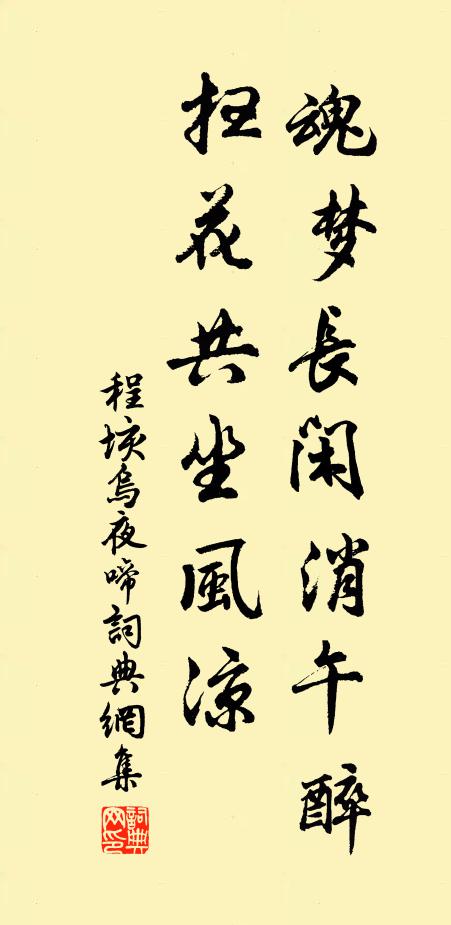 魂梦長閑消午醉
扫花共坐風涼
程垓烏夜啼詞典網集
詞典网印